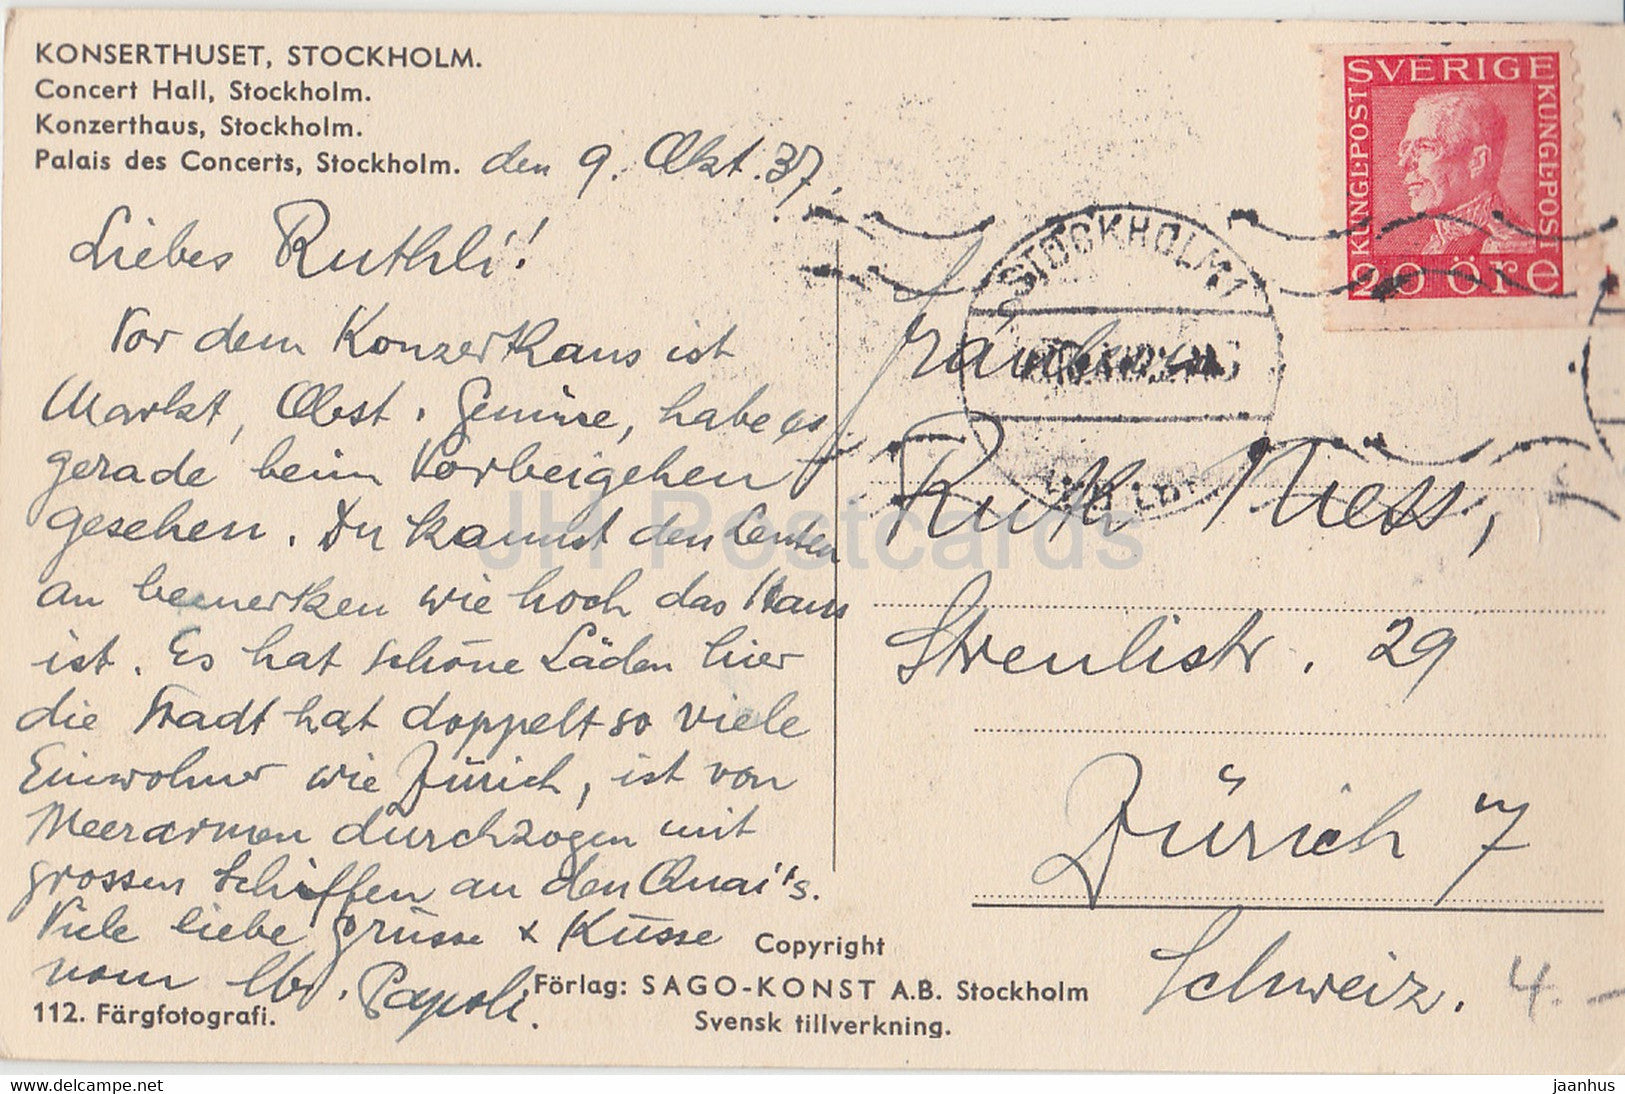 KONSERTHUSET, STOCKHOLM.
Concert Hall, Stockholm.
Konzerthaus, Stockholm.
Palais des Concerts, Stockholm. den 9. Okt. 37.
Liebes Ruthli!
Vor dem Konzerthaus ist
Markt, Obst, Gemüse, habe es
gerade beim Vorbeigehen
gesehen. Du kannst den Leuten
an bemerken wie hoch das Haus
ist. Es hat schöne Läden hier
die Stadt hat doppelt so viele
Einwohner wie Zürich, ist von
Meerarmen durchzogen mit
grossen Schiffen an den Quai's.
Viele liebe Grüsse & Küsse
vom lb. Papali.
112. Färgfotografi.
Copyright
Förlag: SAGO-KONST A.B. Stockholm
Svensk tillverkning.
SVERIGE
KUNGL:POST
KUNGL:POST
20 öre
STOCKHOLM 1
Ruth Nuess,
Streulistr. 29
Zürich 7
Schweiz.
4.-
JH Postcards
www.delcampe.net
jaanhus